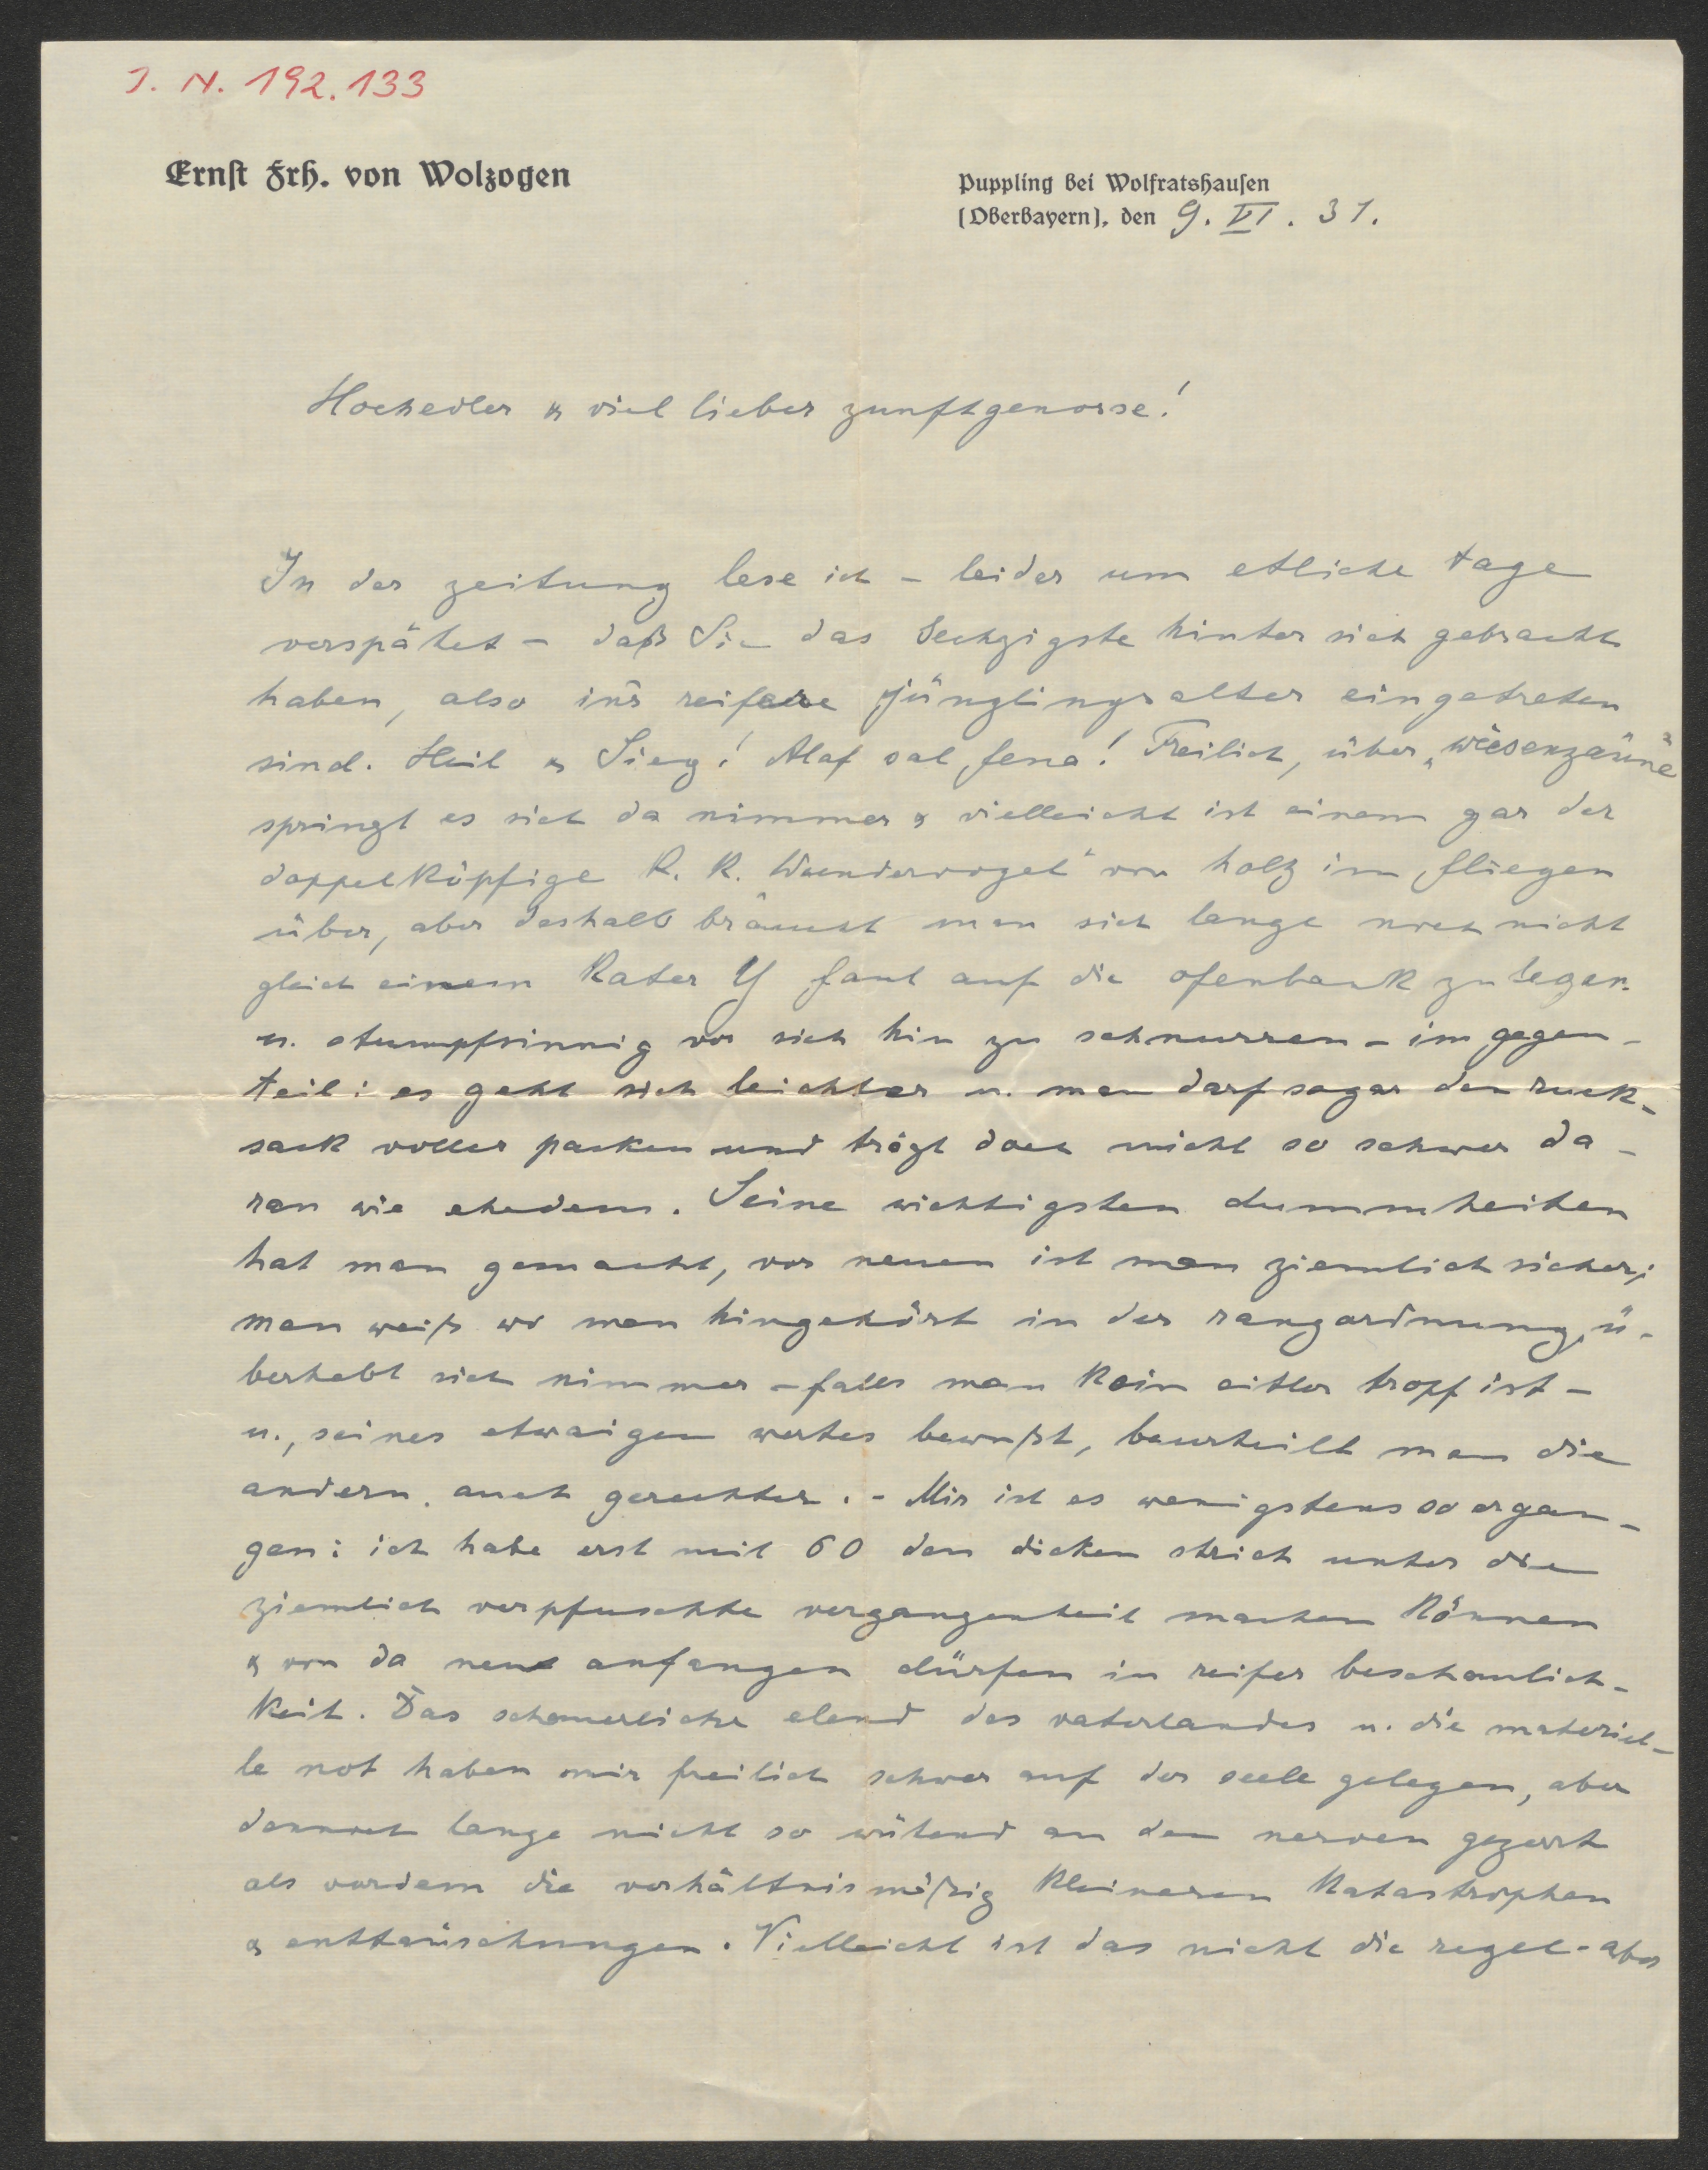 I. N. 192.133
Ernst Frh. von Wolzogen
Puppling bei Wolfratshausen
(Oberbayern), den 9. VI. 31.
Hochedler & viel lieber zunftgenosse!
In der zeitung lese ich – leider um etliche tage
verspätet – daß Sie das Sechzigste hinter sich gebracht
haben, also in's reifere jünglingsalter eingetreten
sind. Heil & Sieg! Alaf sal fena! Freilich, über „wiesenzäune"
springt es sich da nimmer & vielleicht ist einem gar der
doppelköpfige K. K. Wundervogel" von holz im fliegen
über, aber deshalb braucht man sich lange noch nicht
gleich einem Kater Y faul auf die ofenbank zu legen
u. stumpfsinnig vor sich hin zu schnurren – im gegen-
teil: es geht sich leichter u. man darf sogar den ruck-
sack voller packen und trägt doch nicht so schwer da-
ran wie ehedem. Seine wichtigsten dummheiten
hat man gemacht, vor neuen ist man ziemlich sicher;
man weiß wo man hingehört in der rangordnung, ü-
berhebt sich nimmer – falls man kein eitler tropf ist –
u., seines etwaigen wertes bewußt, beurteilt man die
andern auch gerechter. – Mir ist es wenigstens so ergan-
gen: ich habe erst mit 60 den dicken strich unter die
ziemlich verpfuschte vergangenheit machen können
& von da neu anfangen dürfen in reifer beschaulich-
keit. Das schauerliche elend des vaterlandes u. die materiel-
le not haben mir freilich schwer auf der seele gelegen, aber
dennoch lange nicht so wütend an den nerven gezerrt
als vordem die verhältnismäßig kleineren katastrophen
& enttäuschungen. Vielleicht ist das nicht die regel – aber